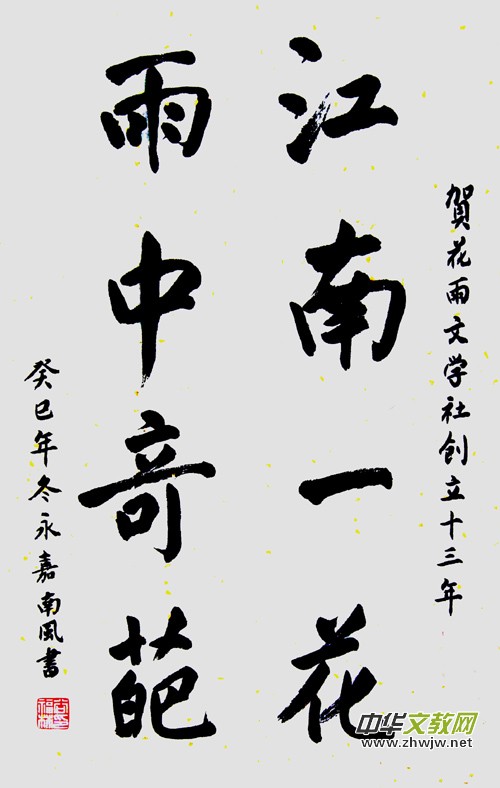 賀花雨文学社创立十三年
江南一花
雨中奇葩
癸巳年冬永嘉南风書
中华文教网
www.zhwjw.net